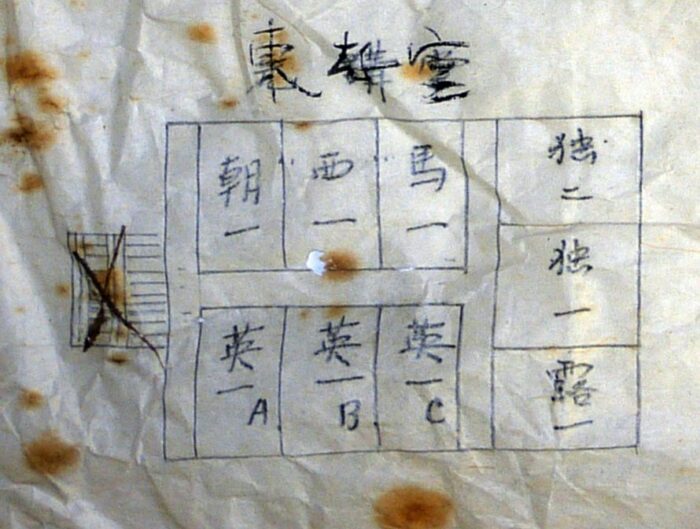 東講室
朝一
西一
馬一
独二
独一
露一
英一A
英一B
英一C